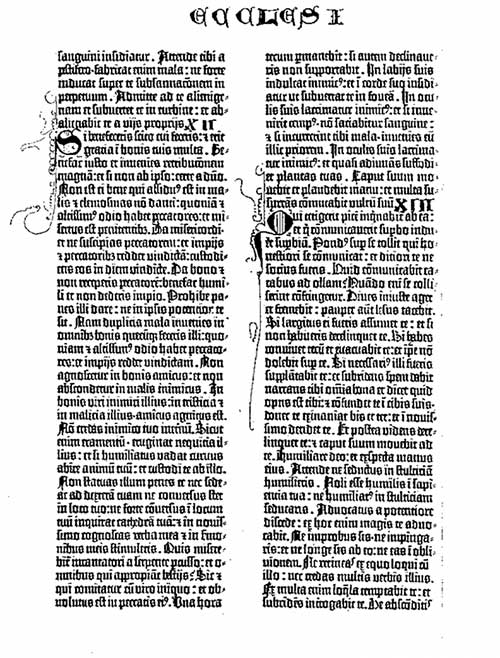 ECCLESI
sanguini insidiatur. Attende tibi a
pestifero·fabricat enim mala: ne forte
inducat super te subsannationem in
perpetuum. Admitte ad te alienige-
nam et subvertet te in turbine: et ab-
alienabit te a vijs proprijs XII
Si benefeceris scito cui feceris: et erit
gratia ī bonis tuis multa. Be-
nefac iusto et invenies retributionem
magnā: et si non ab ipso: certe a dño.
Non est ei bene qui assidu⁹ est in ma-
lis et elemosinas nō danti: quoniā et
altissim⁹ odio habet peccatores: et mi-
sertus est penitentibus. Da misericordi
et ne suscipias peccatorem: et impijs
et peccatoribus reddet vindictā: custodi-
ens eos in diem vindicte. Da bono et
non receperis peccatorē: benefac humi-
li et non dederis impio. Prohibe pa-
nes illi dare: ne in ipsis potentior te
sit. Nam duplicia mala invenies in
omnibus bonis quecūq; feceris illi: quo-
niam et altissim⁹ odio habet peccato-
res: et impijs reddet vindictam. Non
agnoscetur in bonis amicus: et non
abscondetur in malis inimicus. In
bonis viri inimici illius: in tristicia et
in malicia illius·amicus agnitus est.
Nō credas inimico tuo in eternū. Sicut
enim eramentū·eruginat nequitia il-
lius: et si humiliatus vadat curvus
abice animū tuū: et custodi te ab illo.
Non statuas illum penes te nec sede-
at ad dexterā tuam ne conversus stet
in loco tuo: ne forte cōversus ī locum
tuū inquirat cathedrā tuā: et in novis-
simo cognoscas verba mea et in ser-
monibus meis stimuleris. Quis misere-
bitur incantatori a serpente percusso: et o-
mnibus qui appropiāt bestijs? Sic et
qui comitatur cū viro iniquo: et ob-
volutus est in peccatis ei⁹. Una hora
tecum permanebit: si autem declinave-
ris non supportabit. In labijs suis
indulcat inimic⁹: et ī corde suo insidi-
atur ut subvertat te in foveā. In ocu-
lis suis lacrimatur inimic⁹: et si inve-
nerit temp⁹·nō saciabitur sanguine:
et si incurrerint tibi mala·invenies eū
illic priorem. In oculis suis lacrima-
tur inimic⁹: et quasi adiuvās suffodi-
et plantas tuas. Caput suum mo-
vebit et plaudebit manu: et multa su-
surrans cōmutabit vultū suū XIII
Qui tetigerit picē inquinabitur ab ea:
et qui cōmunicaverit superbo indu-
et superbiā. Pondus super se tollit qui ho-
nestiori se cōmunicat: et ditiori te ne
socius fueris. Quid cōmunicabit ca-
cabus ad ollam? Quando enī se colli-
serint cōfringetur. Dives iniuste aget
et fremebit: pauper autē lesus tacebit.
Si largitus ei fueris assumet te: et si
non habueris derelinquet te. Si habes
convivet tecū et evacuabit te: et ipse nō
dolebit super te. Si necessari⁹ illi fueris
supplātabit te: et subridens spem dabit
narrans tibi omīa bona et dicet quid
opus est tibi: et cōfundet te ī cibis suis·
donec te exinaniat bis et ter: et ī novis-
simo deridet te. Et postea videns dere-
linquet te: et caput suum movebit ad
te. Humiliare deo: et exspecta manus
eius. Attende ne seductus in stulticiā
humilieris. Noli esse humilis ī sapi-
encia tua: ne humiliat⁹ in stulticiam
seducaris. Advocatus a potentiore
discede: ex hoc enim magis te advo-
cabit. Ne improbus sis·ne impinga-
ris: et ne longe sis ab eo: ne eas ī obli-
vionem. Ne retineas ex equo loqui cū
illo: nec credas multis verbis illius.
Ex multa enim loquela temptabit te: et
subridēs interrogabit te. De abscōditis